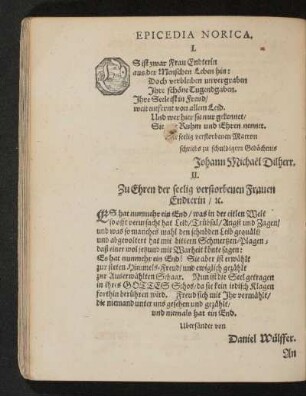 EPICEDIA NORICA.
I.
ES ist zwar Frau Endterin
aus der Menschen Leben hin:
Doch verbleiben unvergraben
Ihre schöne Tugendgaben.
Ihre Seele ist in Freud/
weit entfernt von allem Leid.
Und wer hier sie nur gekennet/
Sie Ruhm und Ehren nennet.
Der seelig verstorbenen Matron
schriebs zu schuldigem Gedächtnis
Johann Michaël Dilherr.
II.
Zu Ehren der seelig verstorbenen Frauen
Endterin/ ꝛc.
ES hat nunmehr ein End/ was in der eitlen Welt
verursacht hat Leid/ Trübsal/ Angst und Zagen/
und was so manches mahl den schnöden Leib gequält/
und abgefoltert hat mit bittern Schmertzen/Plagen/
daß einer wol hievon mit Warheit könte sagen:
Es hat nunmehr ein End! Sie aber ist erwählt
zur steten Himmels-Freud/ und ewiglich gezählt
zur Auserwählten Schaar. Nun ist die Seel getragen
in ihres GOTTES Schos/ da sie kein irdisch Klagen
forthin betrüben wird. Freud sich mit Ihr vermählt/
die niemand unter uns gesehen und gezählt/
und niemals hat ein End.
Ubersendet von
Daniel Wülffer.
An